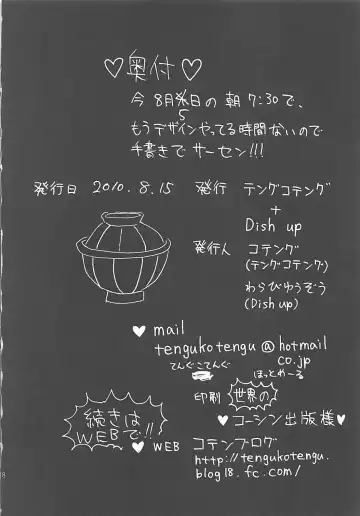 ♡奥付♡
今 8月5日の 朝 7:30で、
もうデザインやってる時間ないので
手書きで サーセン!!!
発行日 2010.8.15 発行 テングコテング
+
Dish up
発行人 コテング
(テングコテング)
わらびゆうぞう
(Dish up)
♥ mail
tengukotengu@hotmail
co.jp
てんぐこてんぐ ほっとめーる
印刷 世界の
♥コーシン出版様♥
続きは
WEBで!!
♥ WEB コテンブログ
http://tengukotengu.
blog18.fc.com/
8